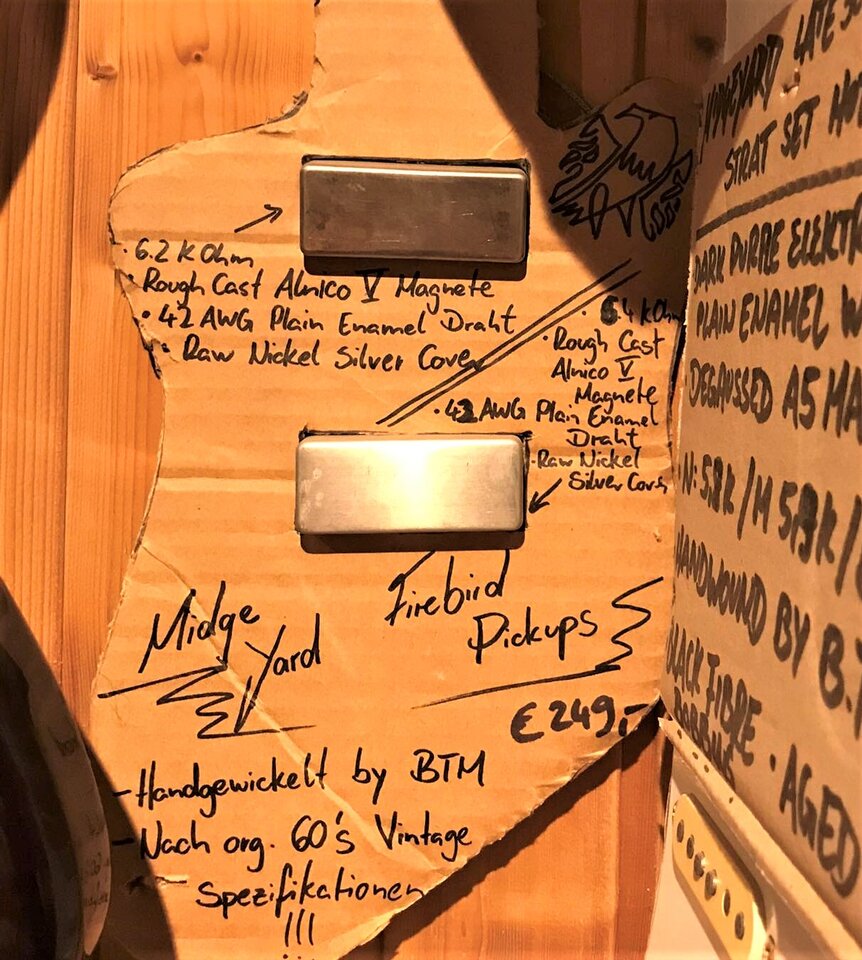 · 6.2 K Ohm
· Rough Cast Alnico V Magnete
· 42 AWG Plain Enamel Draht
· Raw Nickel Silver Cover
· 6.4 kOhm
· Rough Cast
Alnico V
Magnete
· 42 AWG Plain Enamel
Draht
· Raw Nickel
Silver Cover
Midge
Yard
Firebird
Pickups
€ 249,-
- Handgewickelt by BTM
- Nach org. 60's Vintage
Spezifikationen
!!!
LATE
STRAT SET
DARK
PLAIN ENAMEL
DEGAUSSED A5
N: 5.8K / M 5.9K /
HANDWOUND BY B.T.
BLACK FIBRE
· AGED